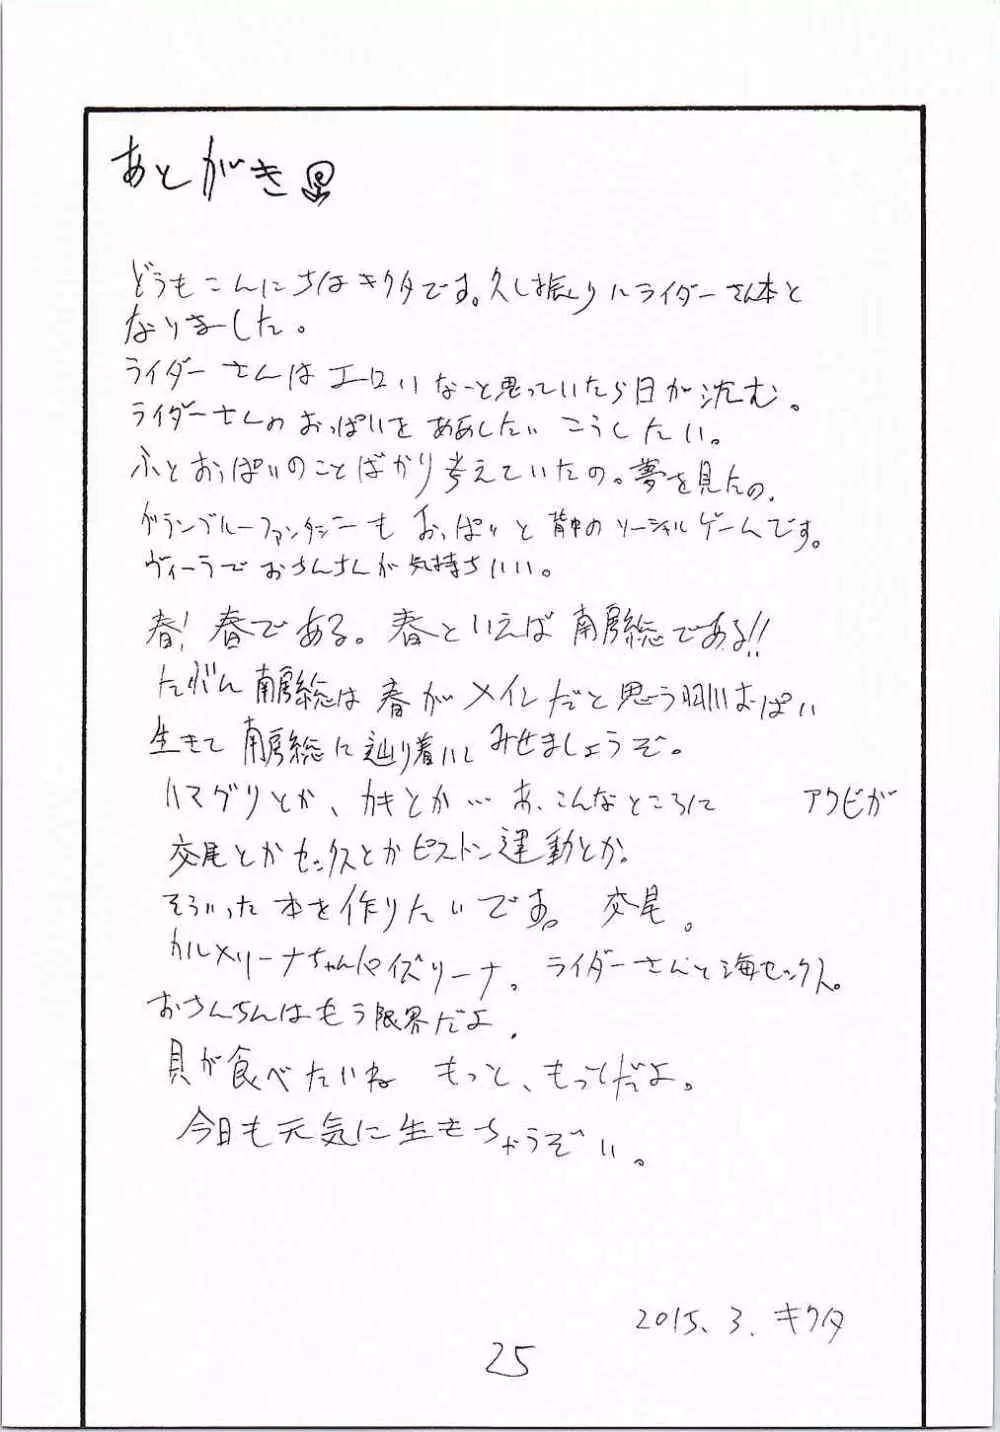 あとがき
どうもこんにちはキクタです。久し振りにライダーさん本と
なりました。
ライダーさんはエロいなーと思っていたら日が沈む。
ライダーさんのおっぱいをああしたいこうしたい。
ふとおっぱいのことばかり考えていたの。夢を見たの。
グランブルーファンタジーもおっぱいと背中のソーシャルゲームです。
ヴィーラでおさんさんが気持ちいい。
春！春である。春といえば南房総である!!
たぶん南房総は春がメインだと思う おっぱい
生きて南房総に辿り着いてみせましょうぞ。
ハマグリとか、カキとか…あ、こんなところに アワビが
交尾とかセックスとかピストン運動とか。
そういった本を作りたいです。交尾。
カルメリーナちゃんパイズリーナ。ライダーさんと海セックス。
おさんちんはもう限界だよ。
貝が食べたいね もっと、もっとだよ。
今日も元気に生きちゃうぞい。
2015.3.キクタ
25